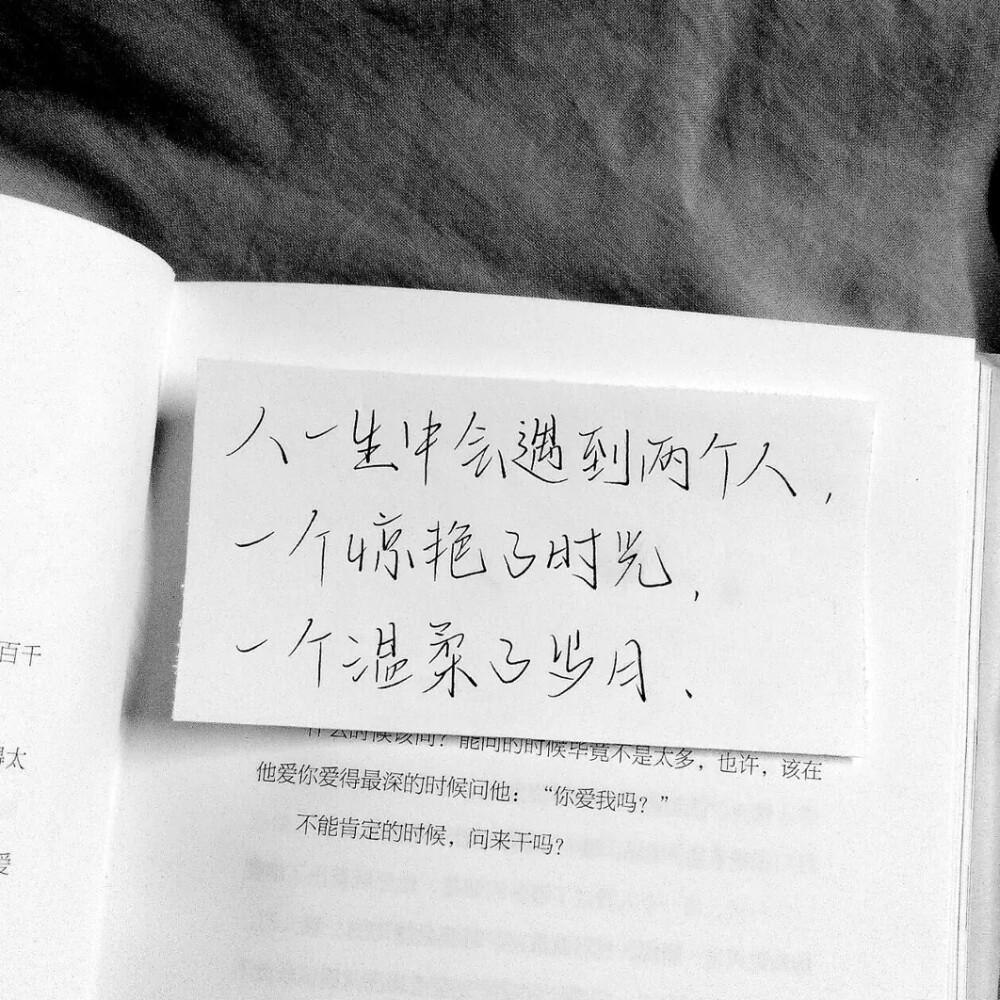 人一生中会遇到两个人,
一个惊艳了时光,
一个温柔了岁月、
百千
得太
爱
什么时候该问?能问的时候毕竟不是太多,也许,该在
他爱你爱得最深的时候问他:“你爱我吗?”
不能肯定的时候,问来干吗?